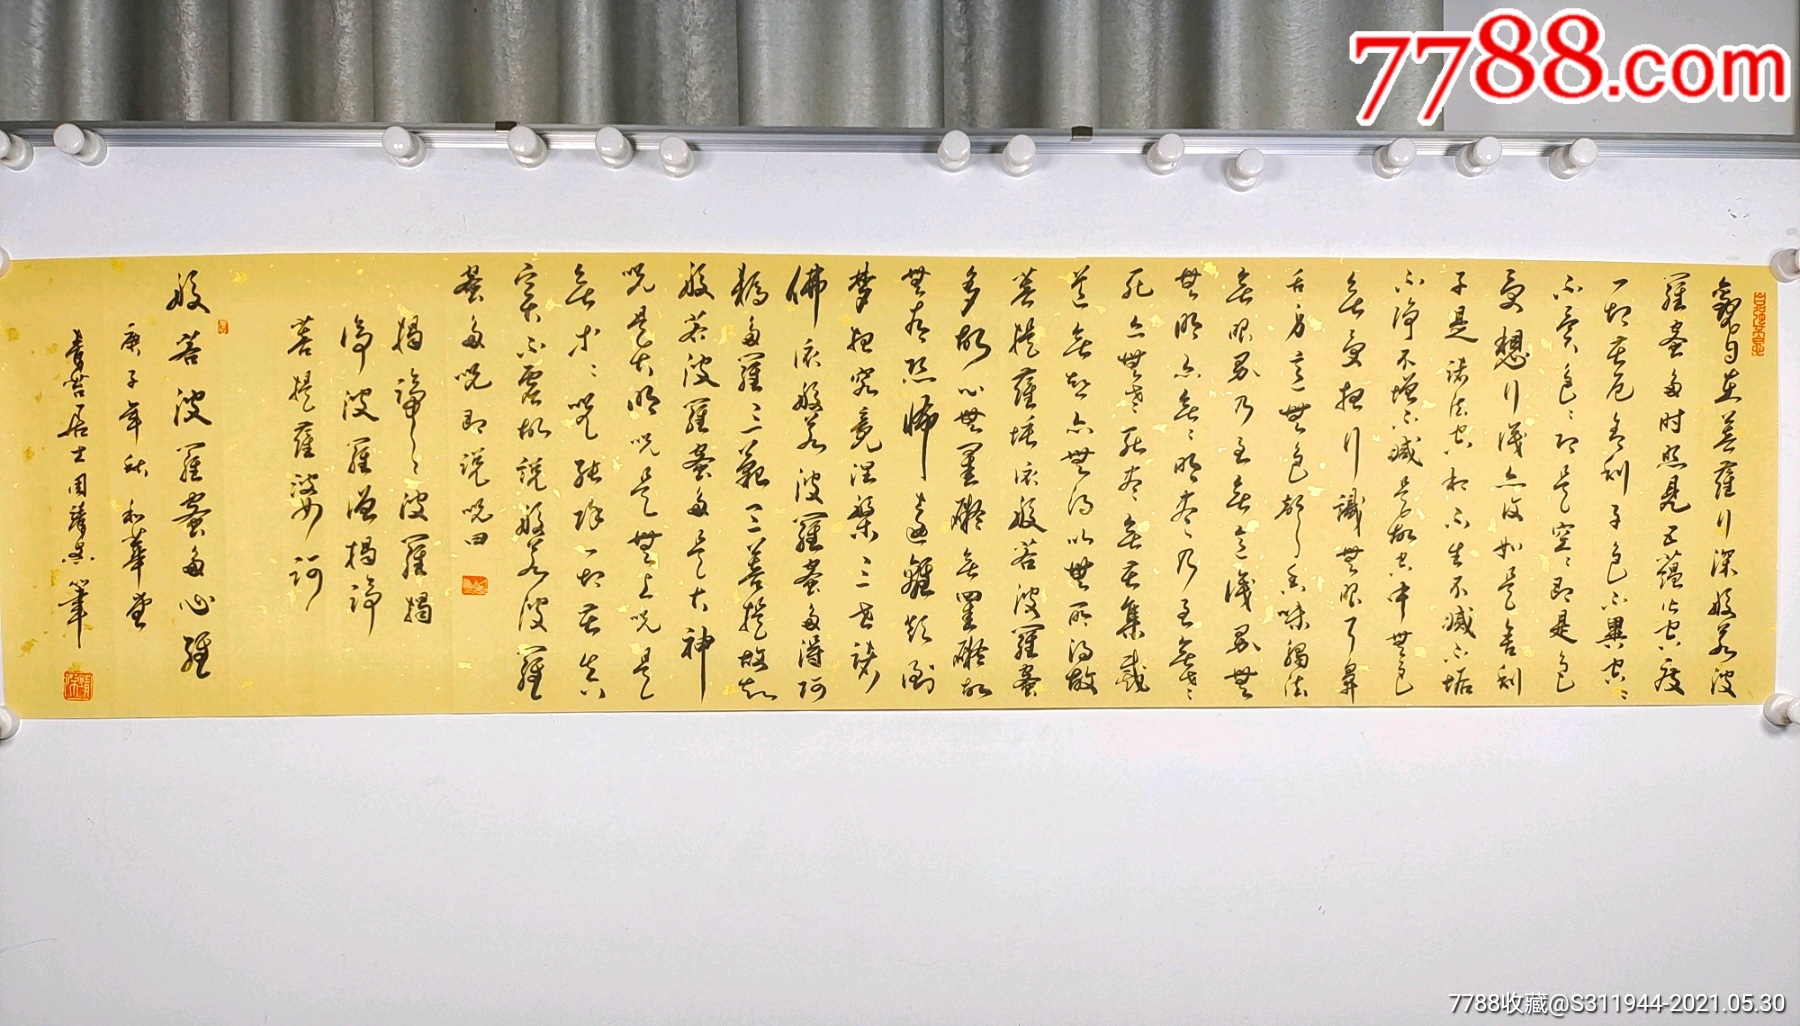 7788.com
觀自在菩薩行深般若波
羅蜜多時照見五蘊皆空度
一切苦厄舍利子色不異空空
不異色色即是空空即是色
受想行識亦復如是舍利
子是諸法空相不生不滅不垢
不淨不增不減是故空中無色
無受想行識無眼耳鼻
舌身意無色聲香味觸法
無眼界乃至無意識界無
無明亦無無明盡乃至無老
死亦無老死盡無苦集滅
道無智亦無得以無所得故
菩提薩埵依般若波羅蜜
多故心無罣礙無罣礙故
無有恐怖遠離顛倒
夢想究竟涅槃三世諸
佛依般若波羅蜜多得阿
耨多羅三藐三菩提故知
般若波羅蜜多是大神
咒是大明咒是無上咒是
無等等咒能除一切苦真
實不虛故說般若波羅
蜜多咒即說咒曰
揭諦揭諦波羅揭
諦波羅僧揭諦
菩提薩婆訶
般若波羅蜜多心經
庚子年秋和華堂
7788收藏@S311944-2021.05.30